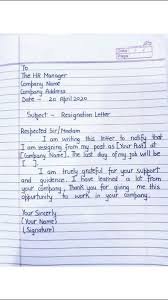 Date
Page
To
The HR Manager
Company Name
Company Address
Date - 20 April 2020
Subject - Resignation Letter
Respected Sir/Madam
I am writing this letter to notify that
I am resigning from my post as [Your Post] at
[Company Name]. The last day of my job will be
[ ].
I am truly grateful for your support
and guidence. I have learned a lot from
your company. Thank you for giving me this
opportunity to work in your company.
Your Sincerly
(Your Name)
(Signature)